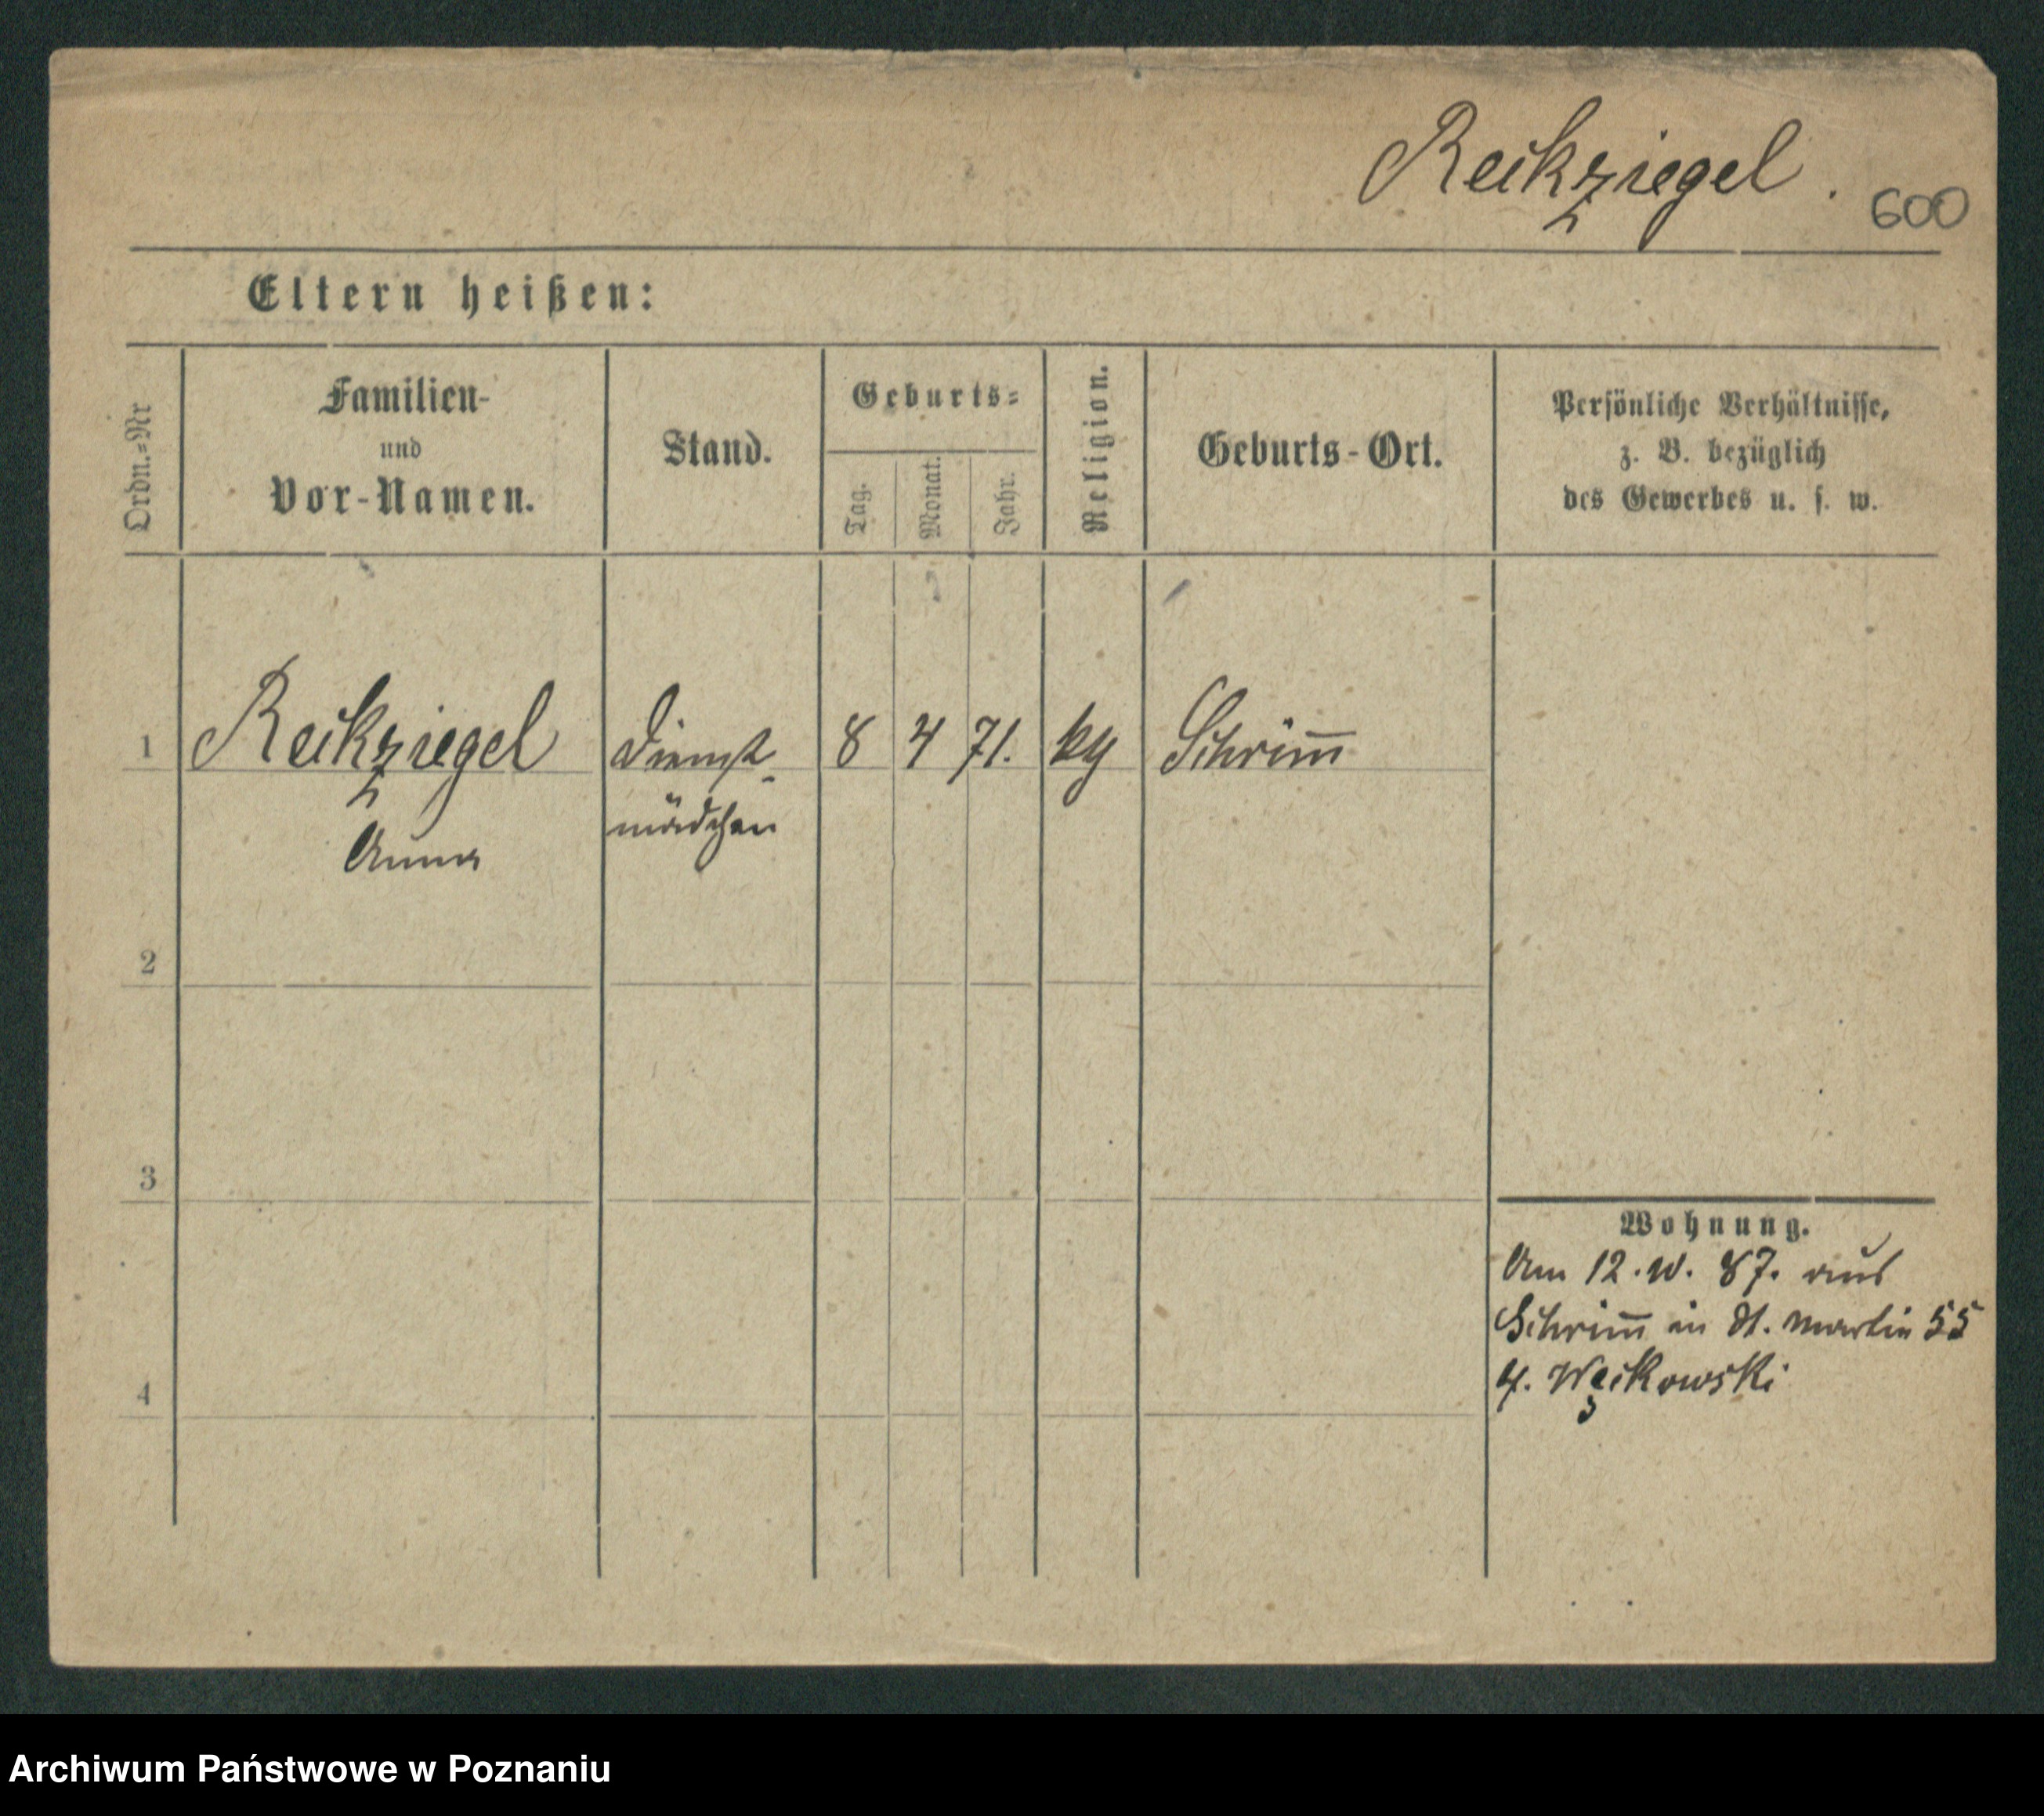 Reikziegel.
600
Eltern heißen:
Ordn.=Nr
Familien-
und
Vor-Namen.
Stand.
Geburts=
Tag.
Monat.
Jahr.
Religion.
Geburts-Ort.
Persönliche Verhältnisse,
z. B. bezüglich
des Gewerbes u. s. w.
1 Reikziegel Dienst- 8 4 71. Schrim̅
Anna mädchen
2
3
4
Wohnung.
Am 12. 87. aus
Schrim̅ in St. Martin 55
Archiwum Państwowe w Poznaniu